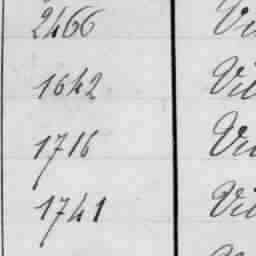 2466 Vi
1642 Vil
1716 Vi
1741 Vil